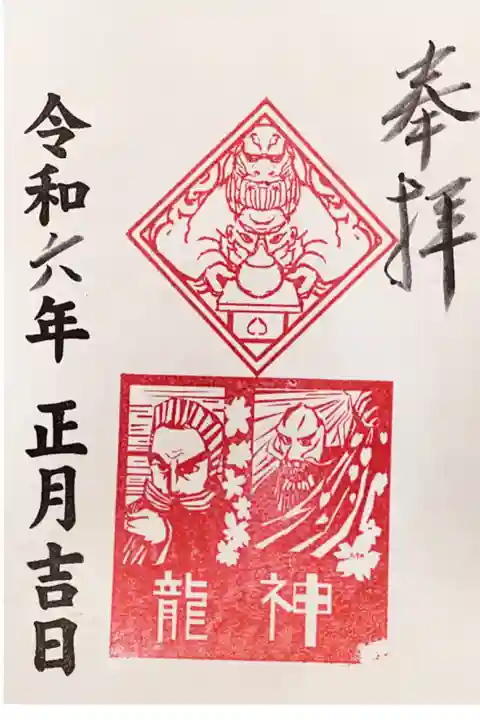 奉拝
神
龍
令和六年 正月吉日